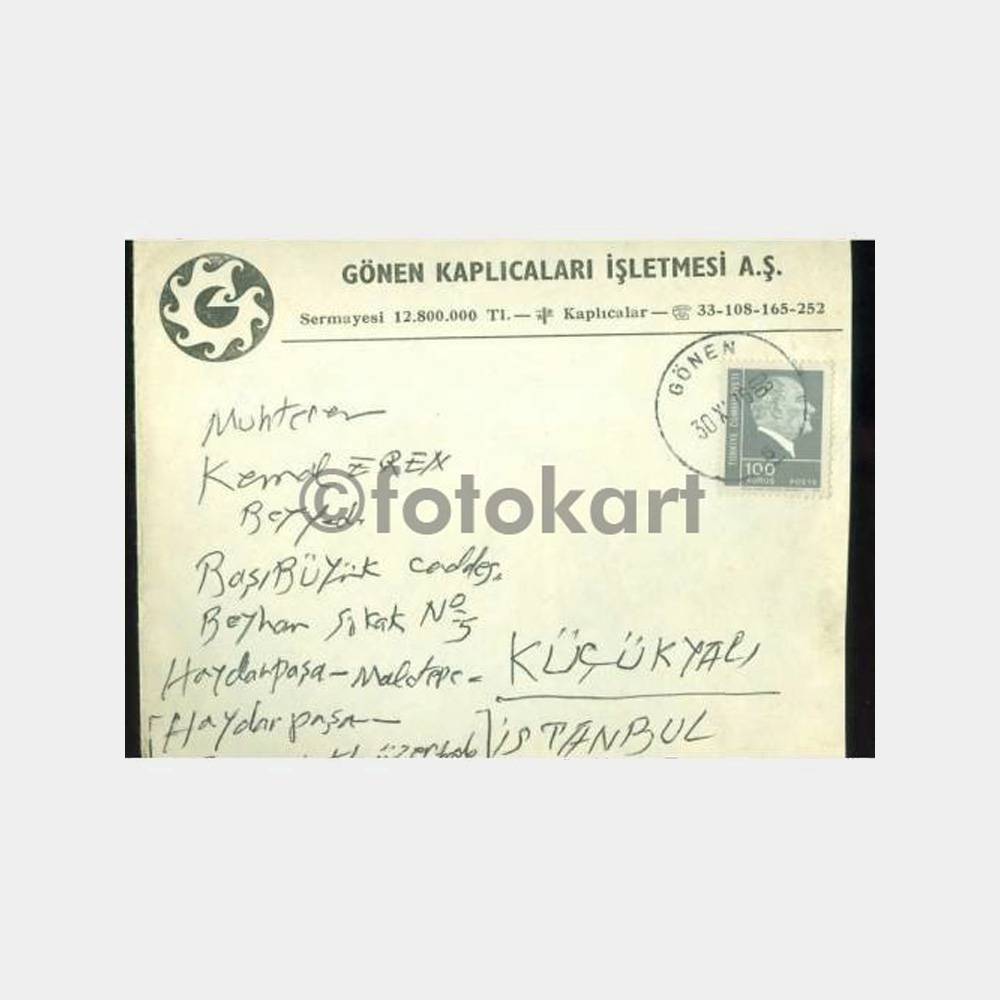 GÖNEN KAPLICALARI İŞLETMESİ A.Ş.
Sermayesi 12.800.000 Tl. — Kaplıcalar — ☏ 33-108-165-252
GÖNEN
30 XI
TÜRKİYE CUMHURİYETİ
100
KURUŞ POSTA
Muhterem
Kemal EREN
Beyfendi
©fotokart
BaşıBÜYük caddes.
Beyhan Sokak No 5
Haydarpaşa - Maltepe -
KÜÇÜKYALI
[Haydarpaşa -
üzerinde]
İSTANBUL